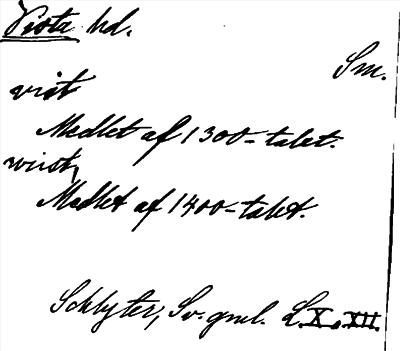 Vista hd.
Sm.
vist
Medlet af 1300-talet.
wist,
Medlet af 1400-talet.
Schlyter, Sv. gml. L. X o. XII.